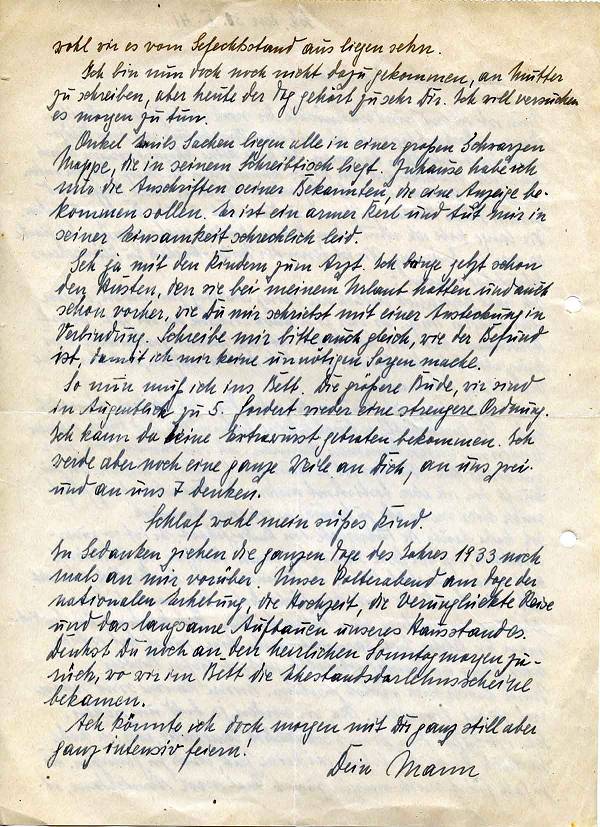 wohl wir es vom Gefechtsstand aus liegen sehn.
Ich bin nun doch noch nicht dazu gekommen, an Mutter
zu schreiben, aber heute der Tag gehört zu sehr Dir. Ich will versuchen
es morgen zu tun.
Onkel Emils Sachen liegen alle in einer großen Schwarzen
Mappe, die in seinem Schreibtisch liegt. Zuhause habe ich
die Anschriften seiner Bekannten, die eine Anzeige be-
kommen sollen. Er ist ein armer Kerl und tut mir in
seiner Einsamkeit schrecklich leid.
Geh ja mit den Kindern zum Arzt. Ich bringe jetzt schon
den Husten, den sie bei meinem Urlaub hatten und auch
schon vorher, wie Du mir schriebst mit einer Ansteckung in
Verbindung. Schreibe mir bitte auch gleich, wie der Befund
ist, damit ich mir keine unnötigen Sorgen mache.
So nun muß ich ins Bett. Die größere Bude, wir sind
im Augenblick zu 5. fordert wieder eine strengere Ordnung.
Ich kann da keine Extrawurst gebraten bekommen. Ich
werde aber noch eine ganze Weile an Dich, an uns zwei
und an uns 7 denken.
Schlaf wohl mein süßes Kind.
In Gedanken ziehen die ganzen Tage des Jahres 1933 noch
mals an mir vorüber. Unser Polterabend am Tage der
nationalen Erhebung, die Hochzeit, die verunglückte Reise
und das langsame Aufbauen unseres Hausstandes.
Denkst Du noch an den herrlichen Sonntagmorgen zu-
rück, wo wir im Bett die Ehestandsdarlehnsscheine
bekamen.
Ach könnte ich doch morgen mit Dir ganz still aber
ganz intensiv feiern!
Dein Mann